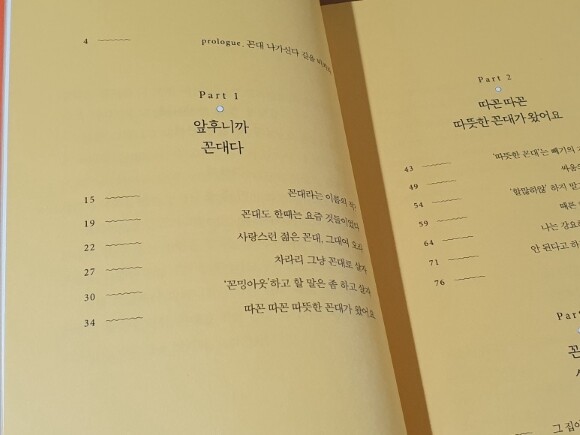 4 prologue. 꼰대 나가신다 길을
Part 1
앞후니까
꼰대다
15 꼰대라는 이름의
19 꼰대도 한때는 요즘 것들이었다
22 사랑스런 젊은 꼰대, 그대여
27 차라리 그냥 꼰대로 살자
30 '꼰밍아웃'하고 할 말은 좀 하고 살자
34 따꼰 따꼰 따뜻한 꼰대가 왔어요
Part 2
따꼰 따꼰
따뜻한 꼰대가 왔어요
43 '따뜻한 꼰대'는 빼기의
49
54 '할많하않' 하지 말고
59 때론
64 나는
71 안 된다고
76
그 집